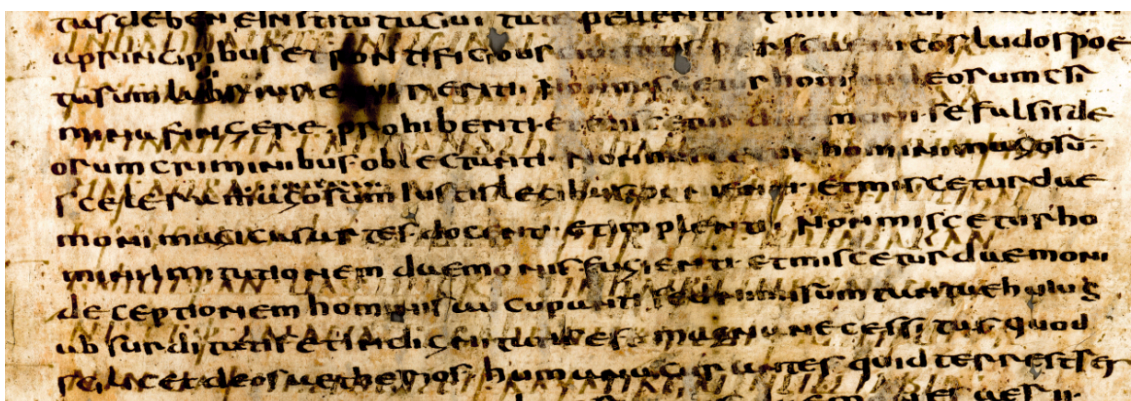 tas de bene instituta civitate pellenti et miscetur daemoni
a principibus et pontificibus civitatis per scaenicos ludos poe
tarum ludibria requirenti non miscetur homini deorum cri
mina fingere prohibenti et miscetur daemoni se falsis de
orum criminibus oblectanti non miscetur homini magorū
scelera magorum iustis legibus punienti et miscetur dae
moni magicas artes docenti et implenti non miscetur ho
mini imitationem daemonis fugienti et miscetur daemoni
deceptionem hominis aucupanti sed nimirum tantae huius
absurditatis et indignitatis est magna necessitas quod
scilicet deos aetherios humana curantes quid terrestres